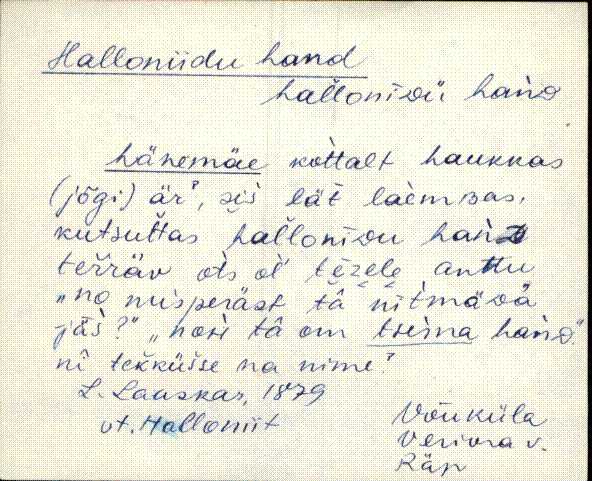 Halloniidu hand
hallonīdu hand
hänemäe kottalt haukkas
(jõgi) är', siś lät laèmbas,
kutsuttas hallonīdu hand
terräv ots ol' tēzele anttu
"no misperäst tā nītmädä
jäś?" "nosi tā om tseina hand."
nī tekküsse na nime'
L. Laaskar, 1879
vt. Halloniit
Võuküla
Veriora v.
Räp